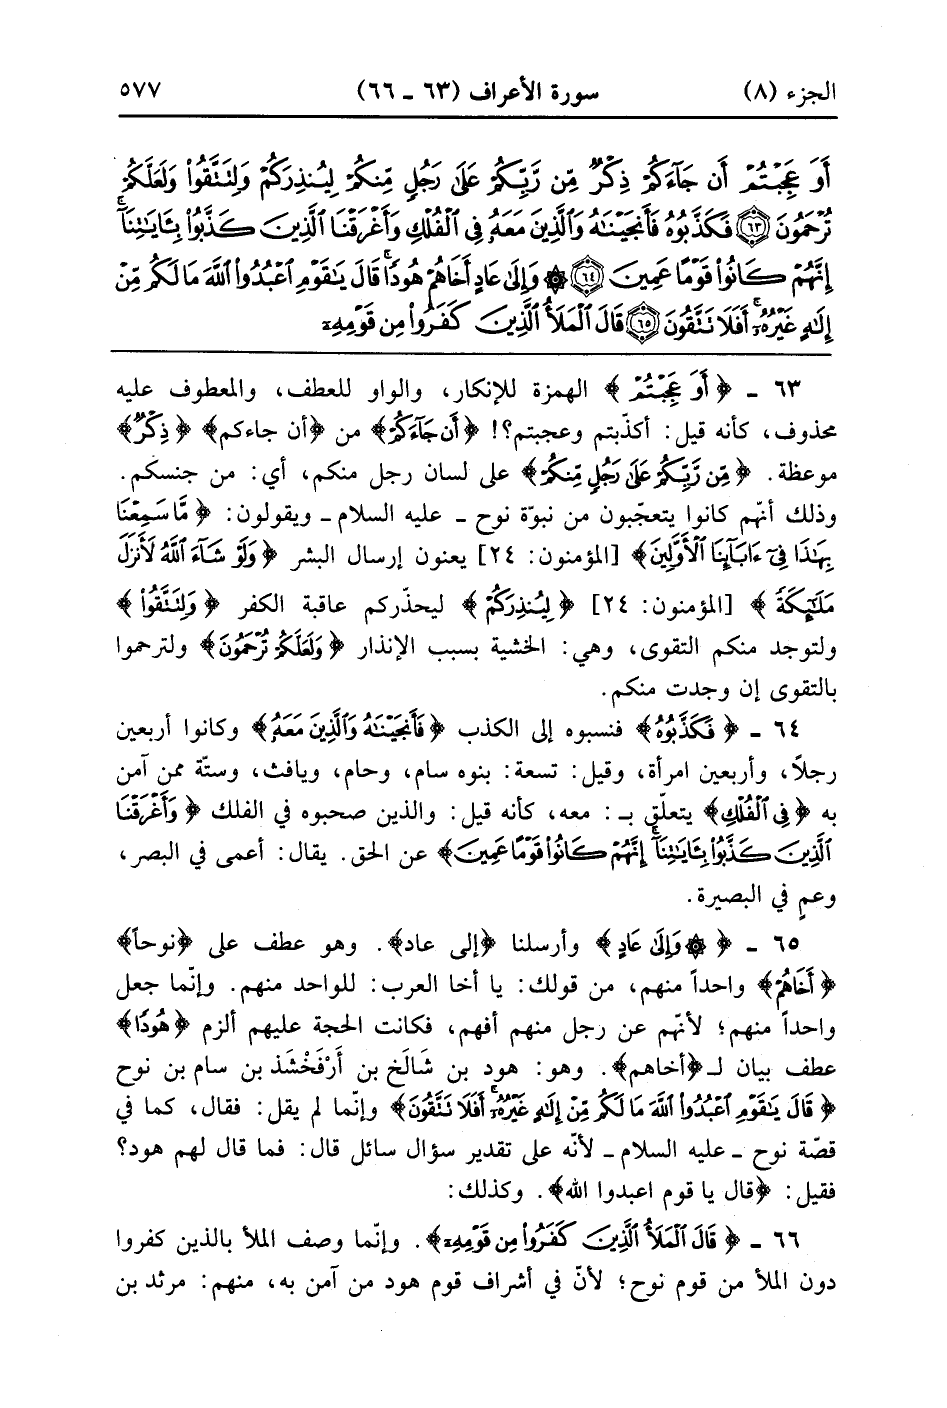 الجزء (٨) سورة الأعراف (٦٣ ـ ٦٦) ٥٧٧
أَوَ عَجِبْتُمْ أَن جَآءَكُمْ ذِكْرٌ مِّن رَّبِّكُمْ عَلَىٰ رَجُلٍ مِّنكُمْ لِيُنذِرَكُمْ وَلِتَتَّقُوا۟ وَلَعَلَّكُمْ
تُرْحَمُونَ ٦٣ فَكَذَّبُوهُ فَأَنجَيْنَٰهُ وَٱلَّذِينَ مَعَهُۥ فِى ٱلْفُلْكِ وَأَغْرَقْنَا ٱلَّذِينَ كَذَّبُوا۟ بِـَٔايَٰتِنَآ ۚ
إِنَّهُمْ كَانُوا۟ قَوْمًا عَمِينَ ٦٤ ۞ وَإِلَىٰ عَادٍ أَخَاهُمْ هُودًا ۗ قَالَ يَٰقَوْمِ ٱعْبُدُوا۟ ٱللَّهَ مَا لَكُم مِّنْ
إِلَٰهٍ غَيْرُهُۥٓ ۚ أَفَلَا تَتَّقُونَ ٦٥ قَالَ ٱلْمَلَأُ ٱلَّذِينَ كَفَرُوا۟ مِن قَوْمِهِۦٓ
٦٣ ـ ﴿أَوَ عَجِبْتُمْ﴾ الهمزة للإنكار، والواو للعطف، والمعطوف عليه
محذوف، كأنه قيل: أكذّبتم وعجبتم؟! ﴿أَن جَآءَكُمْ﴾ من ﴿أن جاءكم﴾ ﴿ذِكْرٌ﴾
موعظة. ﴿مِّن رَّبِّكُمْ عَلَىٰ رَجُلٍ مِّنكُمْ﴾ على لسان رجل منكم، أي: من جنسكم.
وذلك أنّهم كانوا يتعجّبون من نبوّة نوح ـ عليه السلام ـ ويقولون: ﴿مَّا سَمِعْنَا
بِهَٰذَا فِىٓ ءَابَآئِنَا ٱلْأَوَّلِينَ﴾ [المؤمنون: ٢٤] يعنون إرسال البشر ﴿وَلَوْ شَآءَ ٱللَّهُ لَأَنزَلَ
مَلَٰٓئِكَةً﴾ [المؤمنون: ٢٤] ﴿لِيُنذِرَكُمْ﴾ ليحذّركم عاقبة الكفر ﴿وَلِتَتَّقُوا۟﴾
ولتوجد منكم التقوى، وهي: الخشية بسبب الإنذار ﴿وَلَعَلَّكُمْ تُرْحَمُونَ﴾ ولترحموا
بالتقوى إن وجدت منكم.
٦٤ ـ ﴿فَكَذَّبُوهُ﴾ فنسبوه إلى الكذب ﴿فَأَنجَيْنَٰهُ وَٱلَّذِينَ مَعَهُۥ﴾ وكانوا أربعين
رجلاً، وأربعين امرأة، وقيل: تسعة: بنوه سام، وحام، ويافث، وستّة ممن آمن
به ﴿فِى ٱلْفُلْكِ﴾ يتعلّق بـ: معه، كأنه قيل: والذين صحبوه في الفلك ﴿وَأَغْرَقْنَا
ٱلَّذِينَ كَذَّبُوا۟ بِـَٔايَٰتِنَآ ۚ إِنَّهُمْ كَانُوا۟ قَوْمًا عَمِينَ﴾ عن الحق. يقال: أعمى في البصر،
وعمٍ في البصيرة.
٦٥ ـ ﴿۞ وَإِلَىٰ عَادٍ﴾ وأرسلنا ﴿إلى عاد﴾. وهو عطف على ﴿نوحاً﴾
﴿أَخَاهُمْ﴾ واحداً منهم، من قولك: يا أخا العرب: للواحد منهم. وإنّما جعل
واحداً منهم؛ لأنّهم عن رجل منهم أفهم، فكانت الحجة عليهم ألزم ﴿هُودًا﴾
عطف بيان لـ ﴿أخاهم﴾. وهو: هود بن شَالَخ بن أَرْفَخْشَذ بن سام بن نوح
﴿قَالَ يَٰقَوْمِ ٱعْبُدُوا۟ ٱللَّهَ مَا لَكُم مِّنْ إِلَٰهٍ غَيْرُهُۥٓ ۚ أَفَلَا تَتَّقُونَ﴾ وإنّما لم يقل: فقال، كما في
قصّة نوح ـ عليه السلام ـ لأنّه على تقدير سؤال سائل قال: فما قال لهم هود؟
فقيل: ﴿قال يا قوم اعبدوا الله﴾. وكذلك:
٦٦ ـ ﴿قَالَ ٱلْمَلَأُ ٱلَّذِينَ كَفَرُوا۟ مِن قَوْمِهِۦٓ﴾. وإنّما وصف الملأ بالذين كفروا
دون الملأ من قوم نوح؛ لأنّ في أشراف قوم هود من آمن به، منهم: مرثد بن